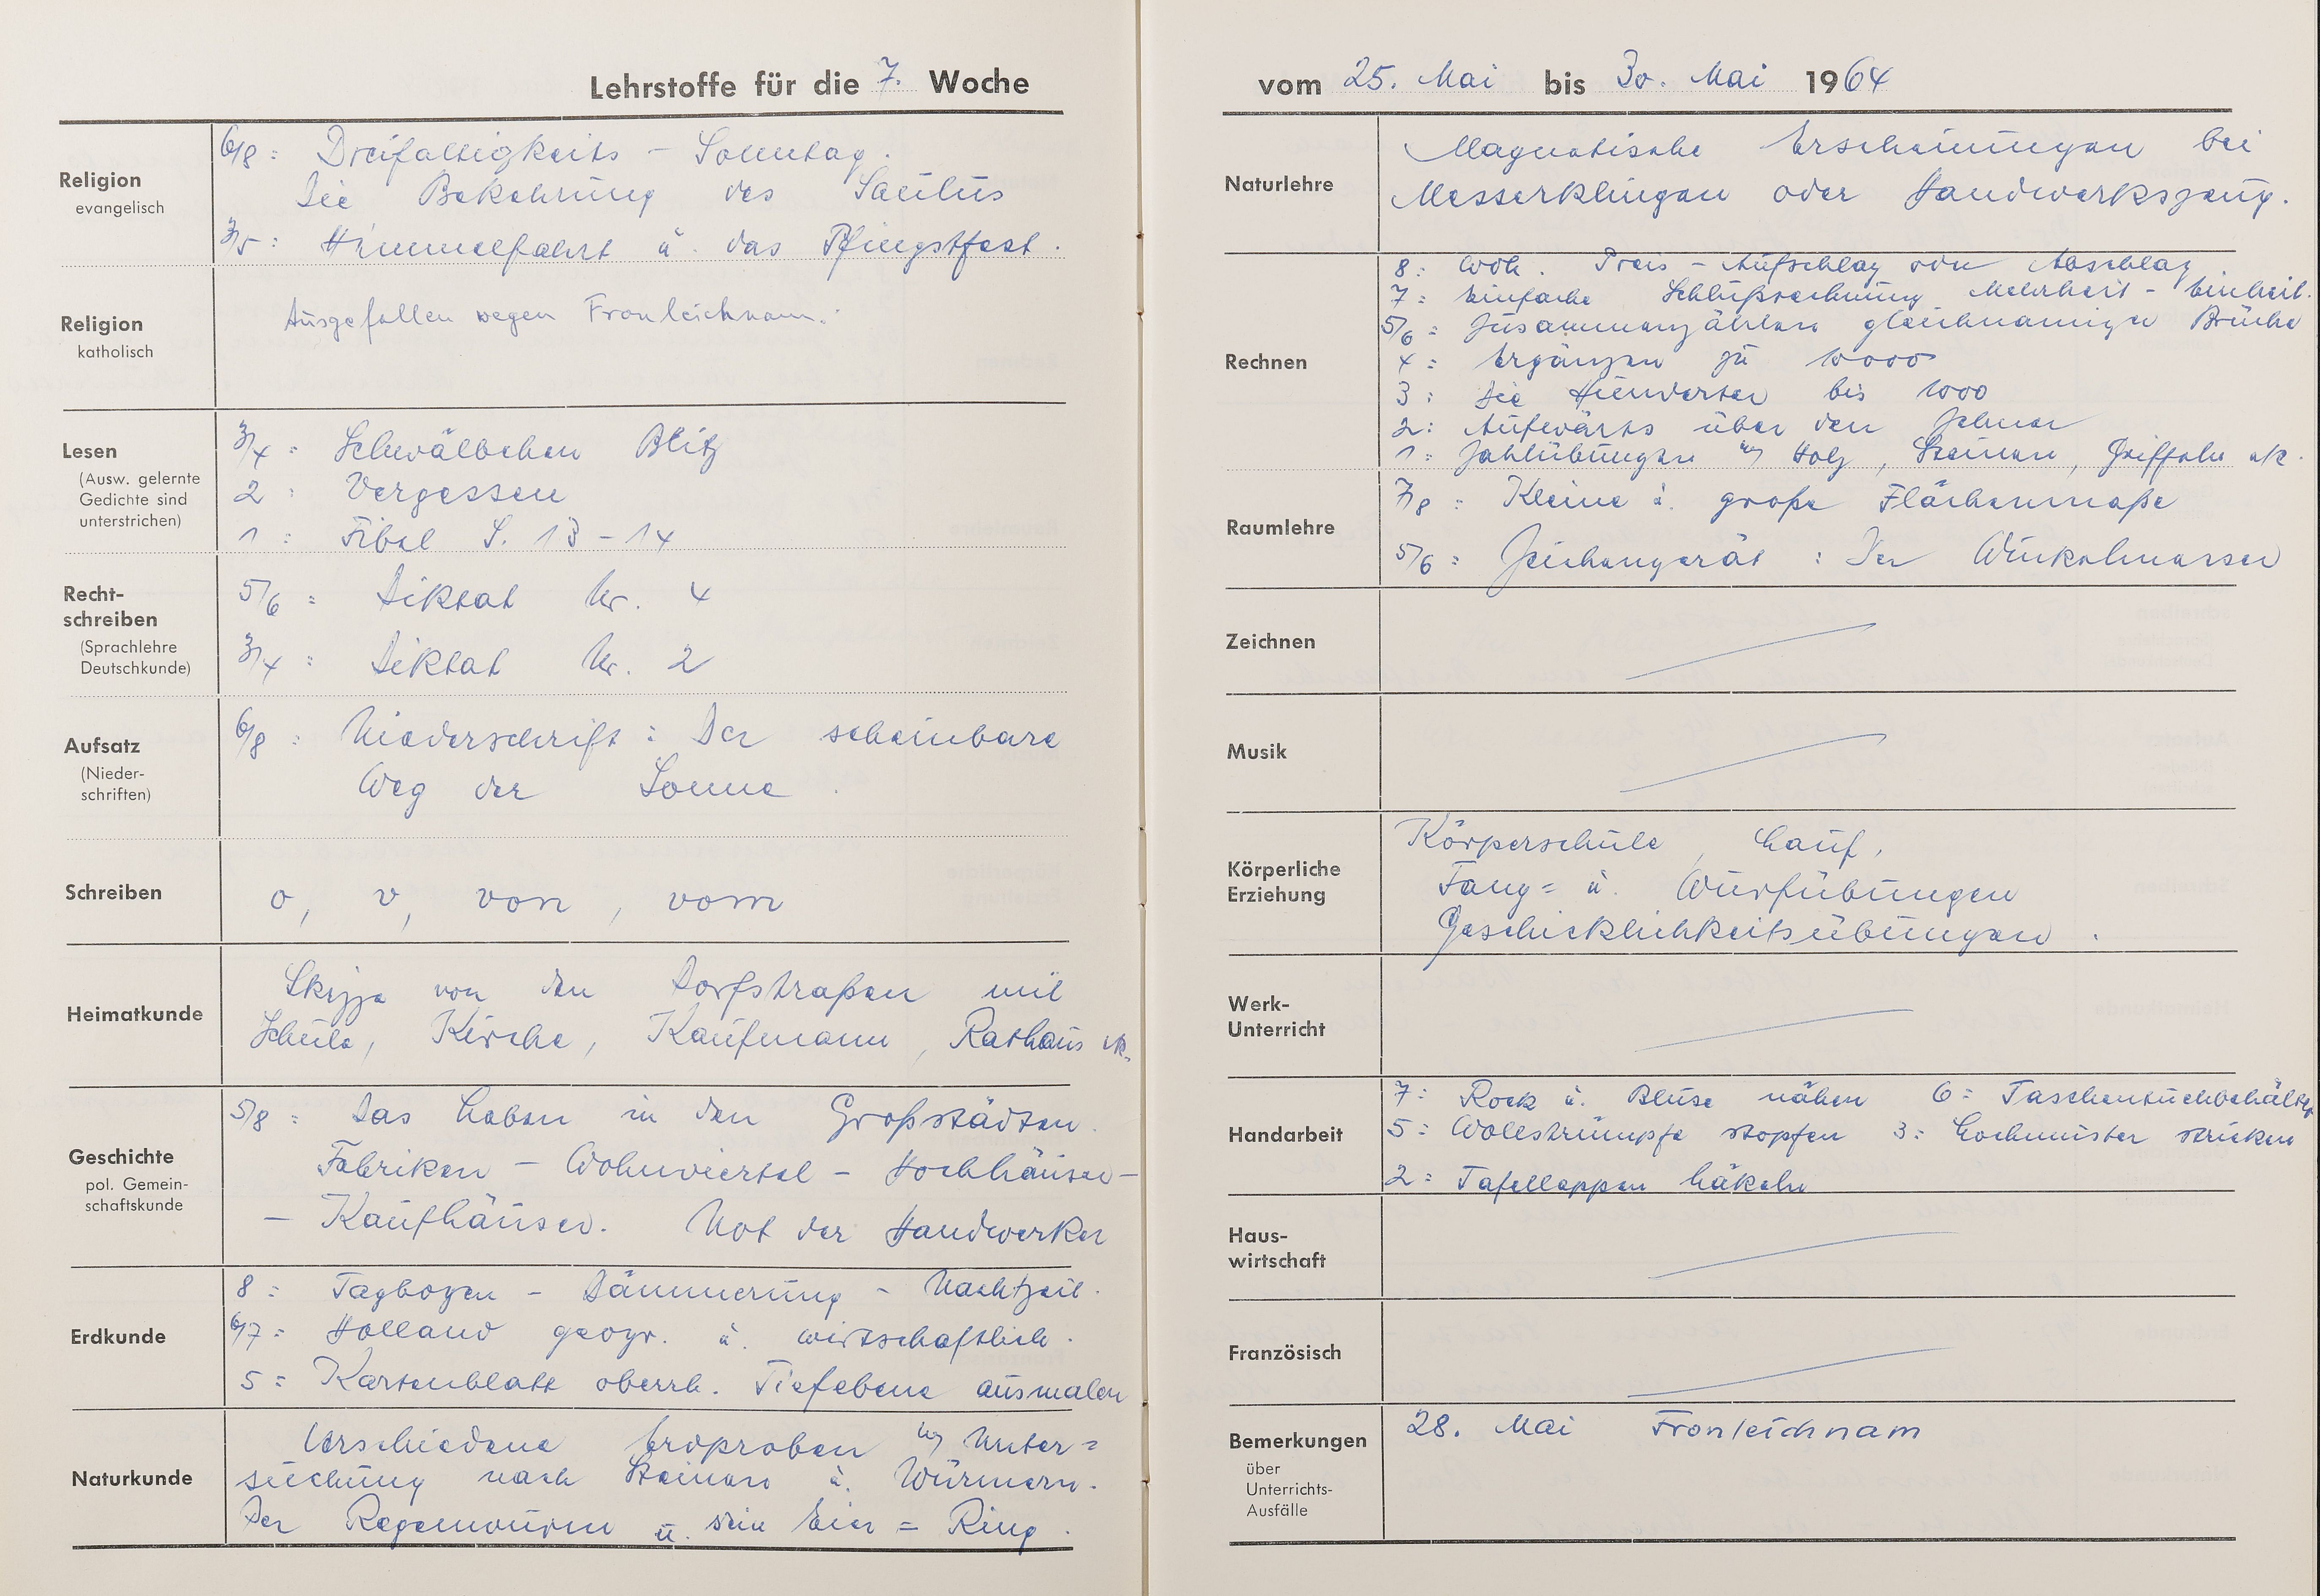 Lehrstoffe für die 7. Woche
Religion
evangelisch
6/8: Dreifaltigkeits - Sonntag.
Die Bekehrung des Saulus
3/5: Himmelfahrt u. das Pfingstfest.
Religion
katholisch
Ausgefallen wegen Fronleichnam.
Lesen
(Ausw. gelernte
Gedichte sind
unterstrichen)
3/4: Schwälbchen Blitz
2: Vergessen
1: Fibel S. 13-14
Recht-
schreiben
(Sprachlehre
Deutschkunde)
5/6: Diktat Nr. 4
3/4: Diktat Nr. 2
Aufsatz
(Nieder-
schriften)
6/8: Niederschrift: Der scheinbare
Weg der Sonne.
Schreiben
o, v, von, vom
Heimatkunde
Skizze von den Dorfstraßen mit
Schule, Kirche, Kaufmann, Rathaus etc.
Geschichte
pol. Gemein-
schaftskunde
5/8: Das Leben in den Großstädten.
Fabriken - Wohnviertel - Hochhäuser -
- Kaufhäuser. Not der Handwerker
Erdkunde
8: Tagbogen - Dämmerung - Nachtzeit.
6/7: Holland geogr. u. wirtschaftlich.
5: Kartenblatt oberrh. Tiefebene ausmalen
Naturkunde
Verschiedene Erdproben Unter=
suchung nach Steinen u. Würmern.
Der Regenwurm u. sein Eier = Ring.
vom 25. Mai bis 30. Mai 1964
Naturlehre
Magnetische Erscheinungen bei
Messerklingen oder Handwerkszeug.
Rechnen
8: Wdh. Preis - Aufschlag von Abschlag
7: Einfache Schlußrechnung Mehrheit - Einheit.
5/6: Zusammenzählen gleichnamiger Brüche
4: Ergänzen zu 10000
3: Die Hunderter bis 1000
2: Aufwärts über den Zehner
1: Zahlübungen Holz, Steinen, Griffeln etc.
Raumlehre
7/8: Kleine u. große Flächenmaße
5/6: Zeichengerät: Der Winkelmesser
Zeichnen
Musik
Körperliche
Erziehung
Körperschule, Lauf,
Fang= u. Wurfübungen
Geschicklichkeitsübungen.
Werk-
Unterricht
Handarbeit
7: Rock u. Bluse nähen 6: Taschentuchbehälter
5: Wollstrümpfe stopfen 3: Lochmuster stricken
2: Tafellappen häkeln
Haus-
wirtschaft
Französisch
Bemerkungen
über
Unterrichts-
Ausfälle
28. Mai Fronleichnam